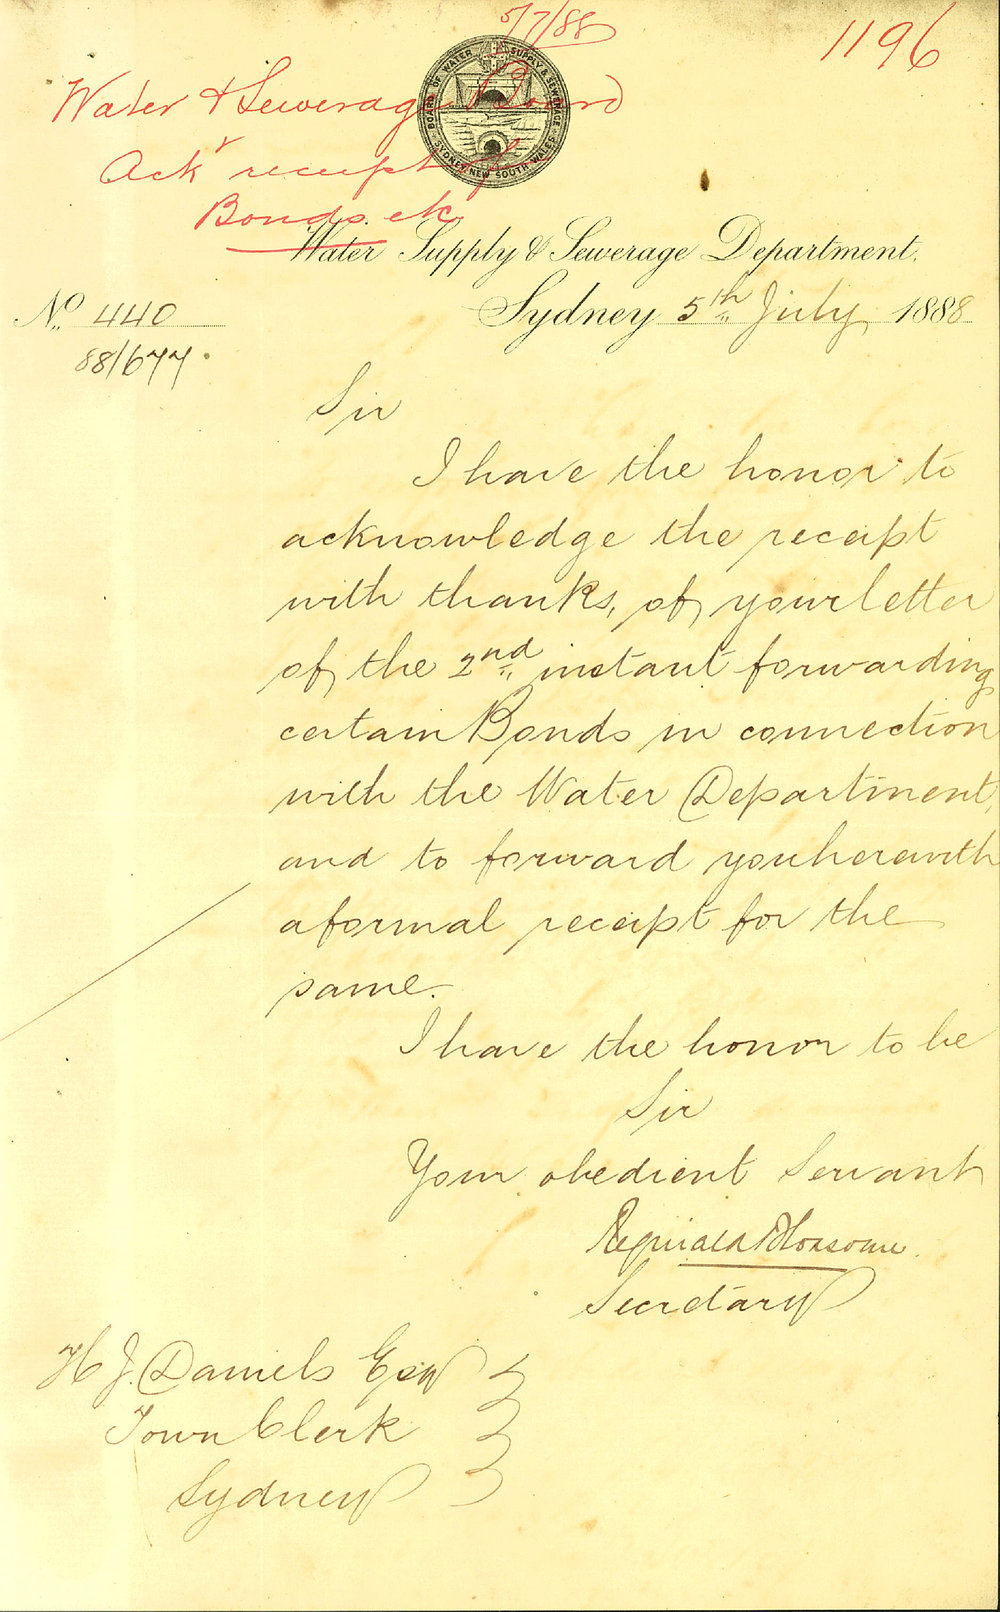 5/7/88
1196
Water & Sewerage Board
Ack receipt of
Bonds etc
BOARD OF WATER SUPPLY & SEWERAGE
SYDNEY, NEW SOUTH WALES
Water Supply & Sewerage Department.
No. 440
Sydney 5th July 1888
88/677.
Sir
I have the honor to
acknowledge the receipt
with thanks, of your letter
of the 2nd instant forwarding
certain Bonds in connection
with the Water Department,
and to forward you herewith
a formal receipt for the
same.
I have the honor to be
Sir
Your obedient Servant
Secretary
H J. Daniels Esq
Town Clerk
Sydney